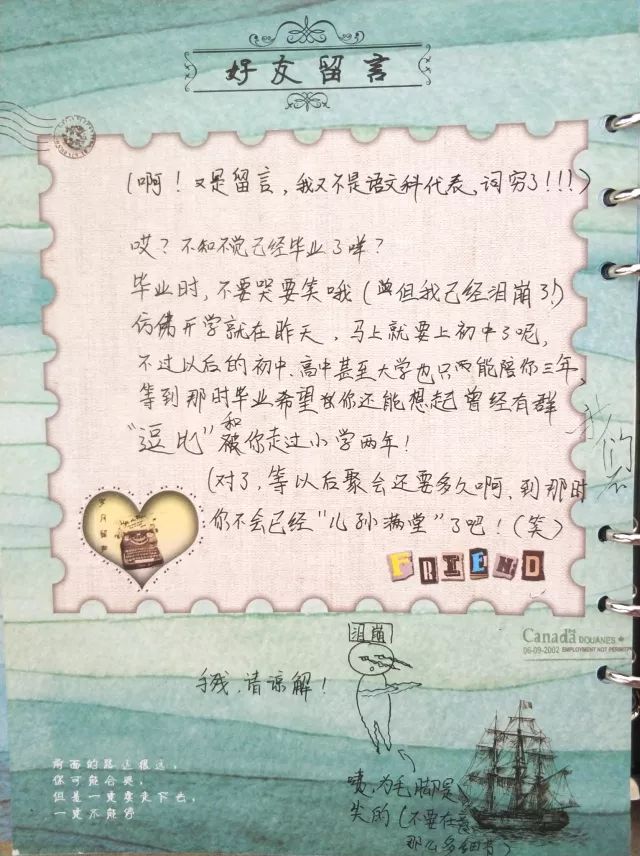 好友留言
(啊！又是留言，我又不是语文科代表，词穷了!!!)
哎？不知不觉已经毕业了咩？
毕业时，不要哭要笑哦(但我已经泪崩了!)
仿佛开学就在昨天，马上就要上初中了呢，
不过以后的初中、高中甚至大学也只能陪你三年，
等到那时毕业希望你还能想起曾经有群
“逗比”和你走过小学两年！
(对了，等以后聚会还要多久啊，到那时
你不会已经“儿孙满堂”了吧！(笑)
我们不
岁月留声
FRIEND
Canada DOUANES
06-09-2002 EMPLOYMENT NOT PERMITTED
泪崩
手残，请谅解！
咦，为毛脚是
笑的(不要在意
那么多细节)
前面的路还很远，
你可能会哭，
但是一定要走下去，
一定不能停